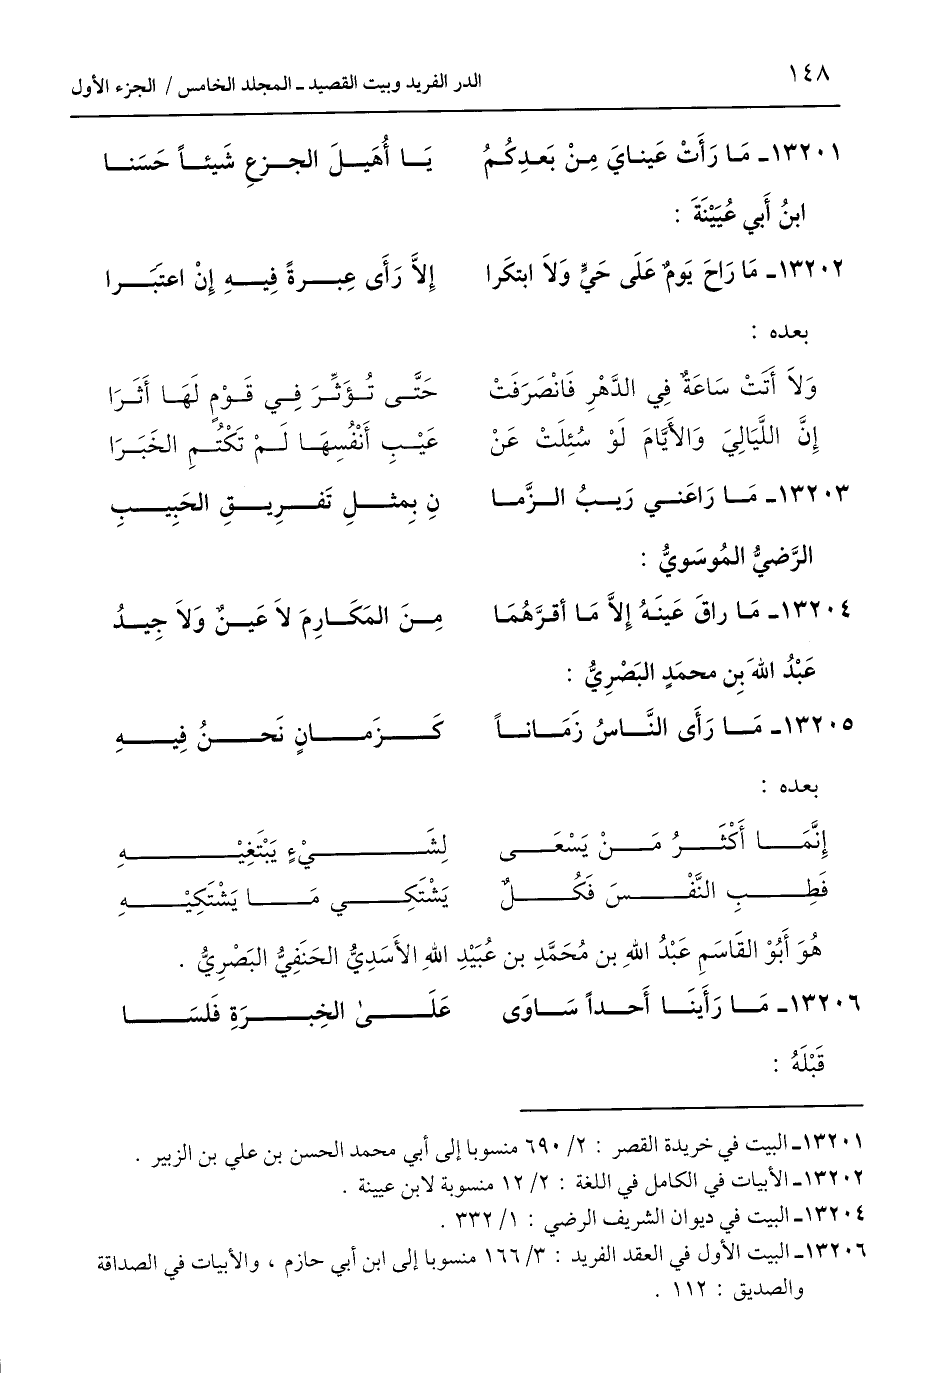 ١٤٨ الدر الفريد وبيت القصيد ـ المجلد الخامس / الجزء الأول
١٣٢٠١ـ مَا رَأَتْ عَينايَ مِنْ بَعدِكُمُ يَا أُهَيلَ الجزعِ شَيئاً حَسَنا
ابنُ أَبي عُيَيْنَةَ :
١٣٢٠٢ـ مَا رَاحَ يَومٌ عَلَى حَيٍّ وَلاَ ابتكَرا إلاَّ رَأَى عِبرةً فِيهِ إنْ اعتبَرا
بعده :
وَلاَ أَتَتْ سَاعَةٌ فِي الدَّهْرِ فَانْصَرَفَتْ حَتَّى تُؤَثِّرَ فِي قَوْمٍ لَهَا أَثَرَا
إِنَّ اللَّيَالِيَ وَالأَيَّامَ لَوْ سُئِلَتْ عَنْ عَيْبِ أَنْفُسِهَا لَمْ تَكْتُمِ الخَبَرَا
١٣٢٠٣ـ مَا رَاعَني رَيبُ الزَّما نِ بِمثلِ تَفرِيقِ الحَبِيبِ
الرَّضيُّ المُوسَويُّ :
١٣٢٠٤ـ مَا راقَ عَينَهُ إلاَّ مَا أقرَّهُمَا مِنَ المَكَارِمَ لاَ عَينٌ وَلاَ جِيدُ
عَبْدُ اللهَ بِن محمَدٍ البَصْرِيُّ :
١٣٢٠٥ـ مَا رَأَى النَّاسُ زَمَاناً كَزمَانٍ نَحنُ فِيهِ
بعده :
إِنَّمَا أَكْثَرُ مَنْ يَسْعَى لِشَيْءٍ يَبْتَغِيْهِ
فَطِبِ النَّفْسَ فَكُلٌ يَشْتَكِي مَا يَشْتَكِيْهِ
هُوَ أَبُوْ القَاسَمِ عَبْدُ اللهِ بن مُحَمَّدِ بن عُبَيْدِ اللهِ الأَسَدِيُّ الحَنَفِيُّ البَصْرِيُّ .
١٣٢٠٦ـ مَا رَأَينَا أَحداً سَاوَى عَلَىٰ الخِبرَةِ فَلسَا
قَبْلَهُ :
١٣٢٠١ـ البيت في خريدة القصر : ٢/ ٦٩٠ منسوبا إلى أبي محمد الحسن بن علي بن الزبير .
١٣٢٠٢ـ الأبيات في الكامل في اللغة : ٢/ ١٢ منسوبة لابن عيينة .
١٣٢٠٤ـ البيت في ديوان الشريف الرضي : ١/ ٣٣٢ .
١٣٢٠٦ـ البيت الأول في العقد الفريد : ٣/ ١٦٦ منسوبا إلى ابن أبي حازم ، والأبيات في الصداقة
والصديق : ١١٢ .